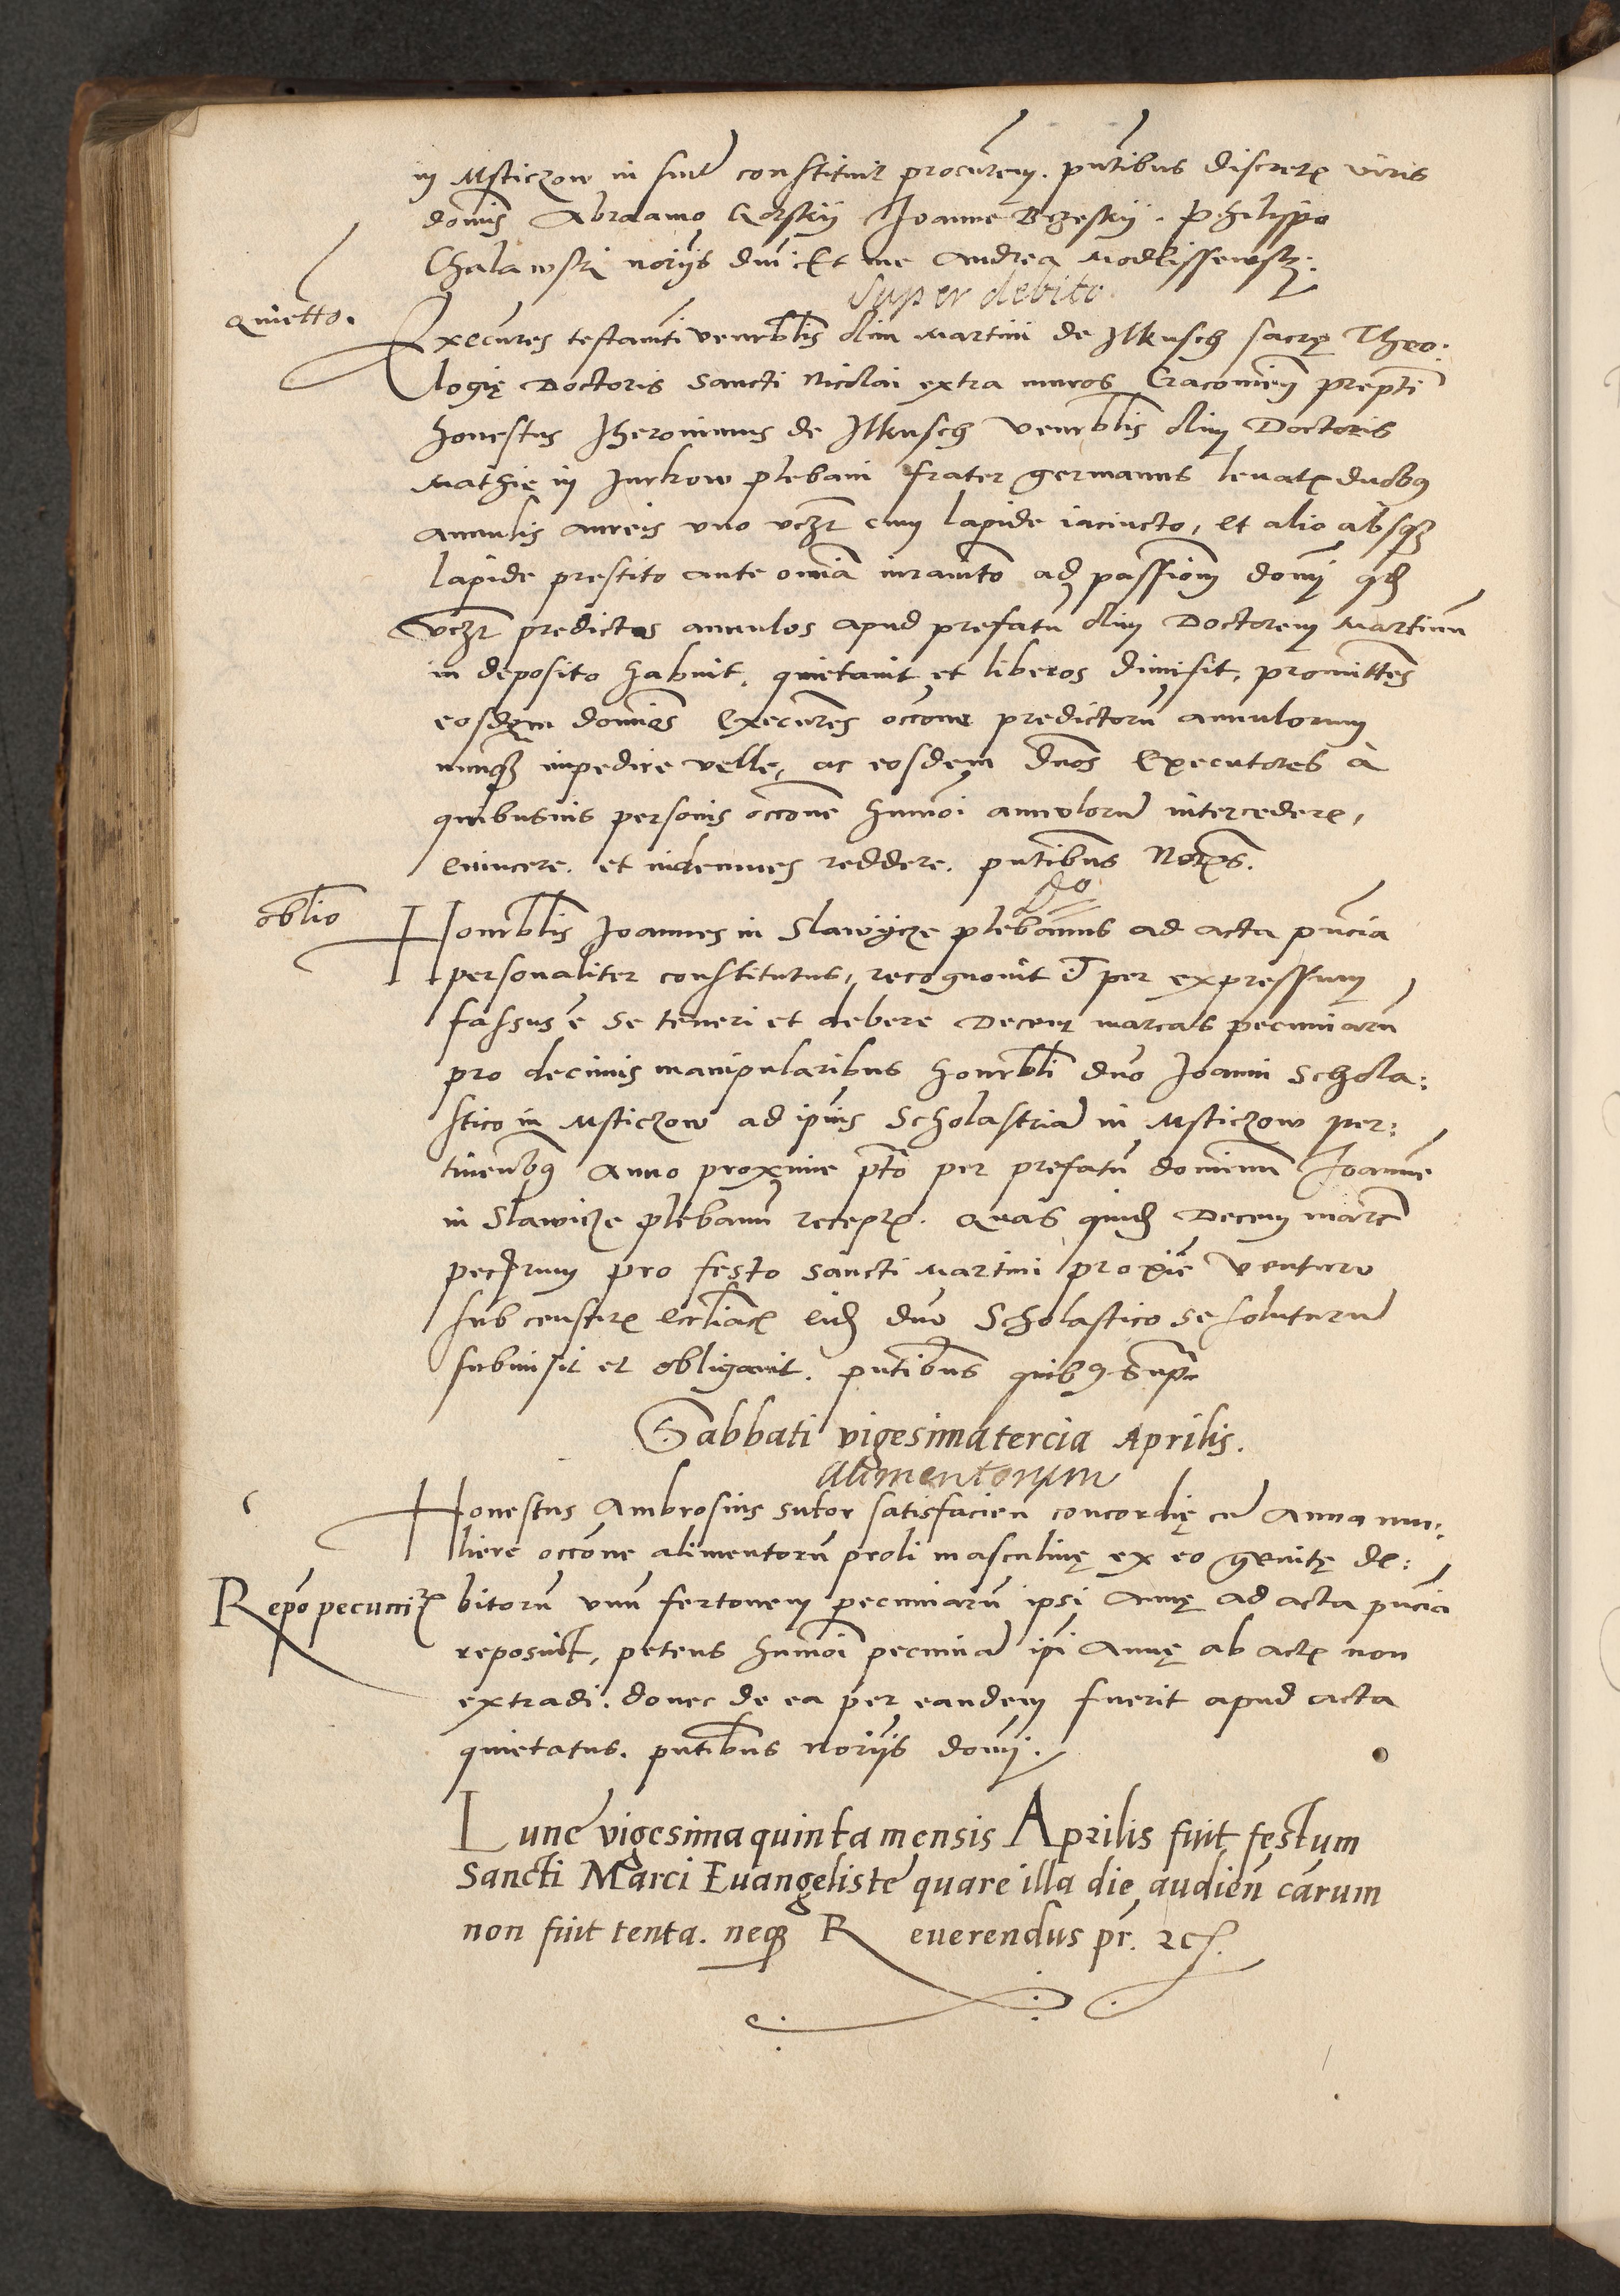 in Msticzow in suu͞ constituit procu͞rem. pn͞tibus discretꝭ viris
domi͞s Abraamo Gorskÿ Joanne Brzeskÿ. Philippo
Chalawski norÿs dui͞ Et me Andrea Modlissewskj.
super debito
Quietto.
Execu͞res testamͭi venerblis͞ olim Martini de Ilkusch sacrę Theo:
logię Doctoris Sancti Nicolai extra muros Cracouien͞ prepti͞
honestus Iheronimus de Ilkusch venerblis͞ olim Doctoris
Mathię in Jurkow plebani frater germanus leuatꝭ duobꝯ
annulis aureis vno vczt͞ cum lapide iacincto, et alio absqꝫ
lapide prestito ante omi͞a iuramͭto ad passionem domi͞ qd͞
vczt͞ predictos annulos apud prefatu͞ olim Doctorem Martinu͞
in deposito habuit, quietauit et liberos dimisit, promittens
eosdem domi͞os Execu͞res occo͞ne predictoru͞ annulorum
nunqꝫ impedire velle, ac eosdem dn͞os Executores à
quibusuis personis occo͞ne hmo͞i annuloru͞ intercedere,
euincere, et indemnes reddere. pn͞tibus Notꝭs.
do
oblio͞
Honorblis͞ Joannes in Slawÿcze plebanus ad acta pn͞cia
personaliter constitutus, recognouit et per expressum
fassus e͞ se teneri et debere Decem marcas pecuniaru͞
pro decimis manipularibus honorbli͞ dn͞o Joanni Schola:
stico in Msticzow ad ipi͞us Scholastria͞ in Msticzow per:
tinen͞bꝯ Anno proxime pt͞o per prefatu͞ dominu͞ Joanne͞
in Slawicze plebanu͞ receptꝭ. Quas quid͞ Decem marc͞
pecu͞rum pro festo sancti Martini proxie͞ venturo
sub censurꝭ eccliacꝭ͞ eid͞ dn͞o Scholastico se soluturu͞
submisit et obligauit. pn͞tibus quibꝯ supra
Sabbati vigesimatercia Aprilis.
alimentorum
Honestus Ambrosius sutor satisfacien͞ concordię cu͞ Anna mu:
liere occo͞ne alimentoru͞ proli masculinę ex eo genitę de:
Repo͞ pecuniꝭ
bitoru͞ vnu͞ fertonem pecuniaru͞ ipsi Annę ad acta pn͞cia
reposuit, petens hmo͞i pecunia͞ ipi͞ Annę ab actꝭ non
extradi. donec de ea per eandem fuerit apud acta
quietatus. pn͞tibus norÿs domi͞.
Lune vigesimaquinta mensis Aprilis fuit festum
Sancti Marci Euangeliste quare illa die audien͞ ca͞rum
non fuit tenta. neqꝫ Reuerendus pr͞. ꝛcꝭ.